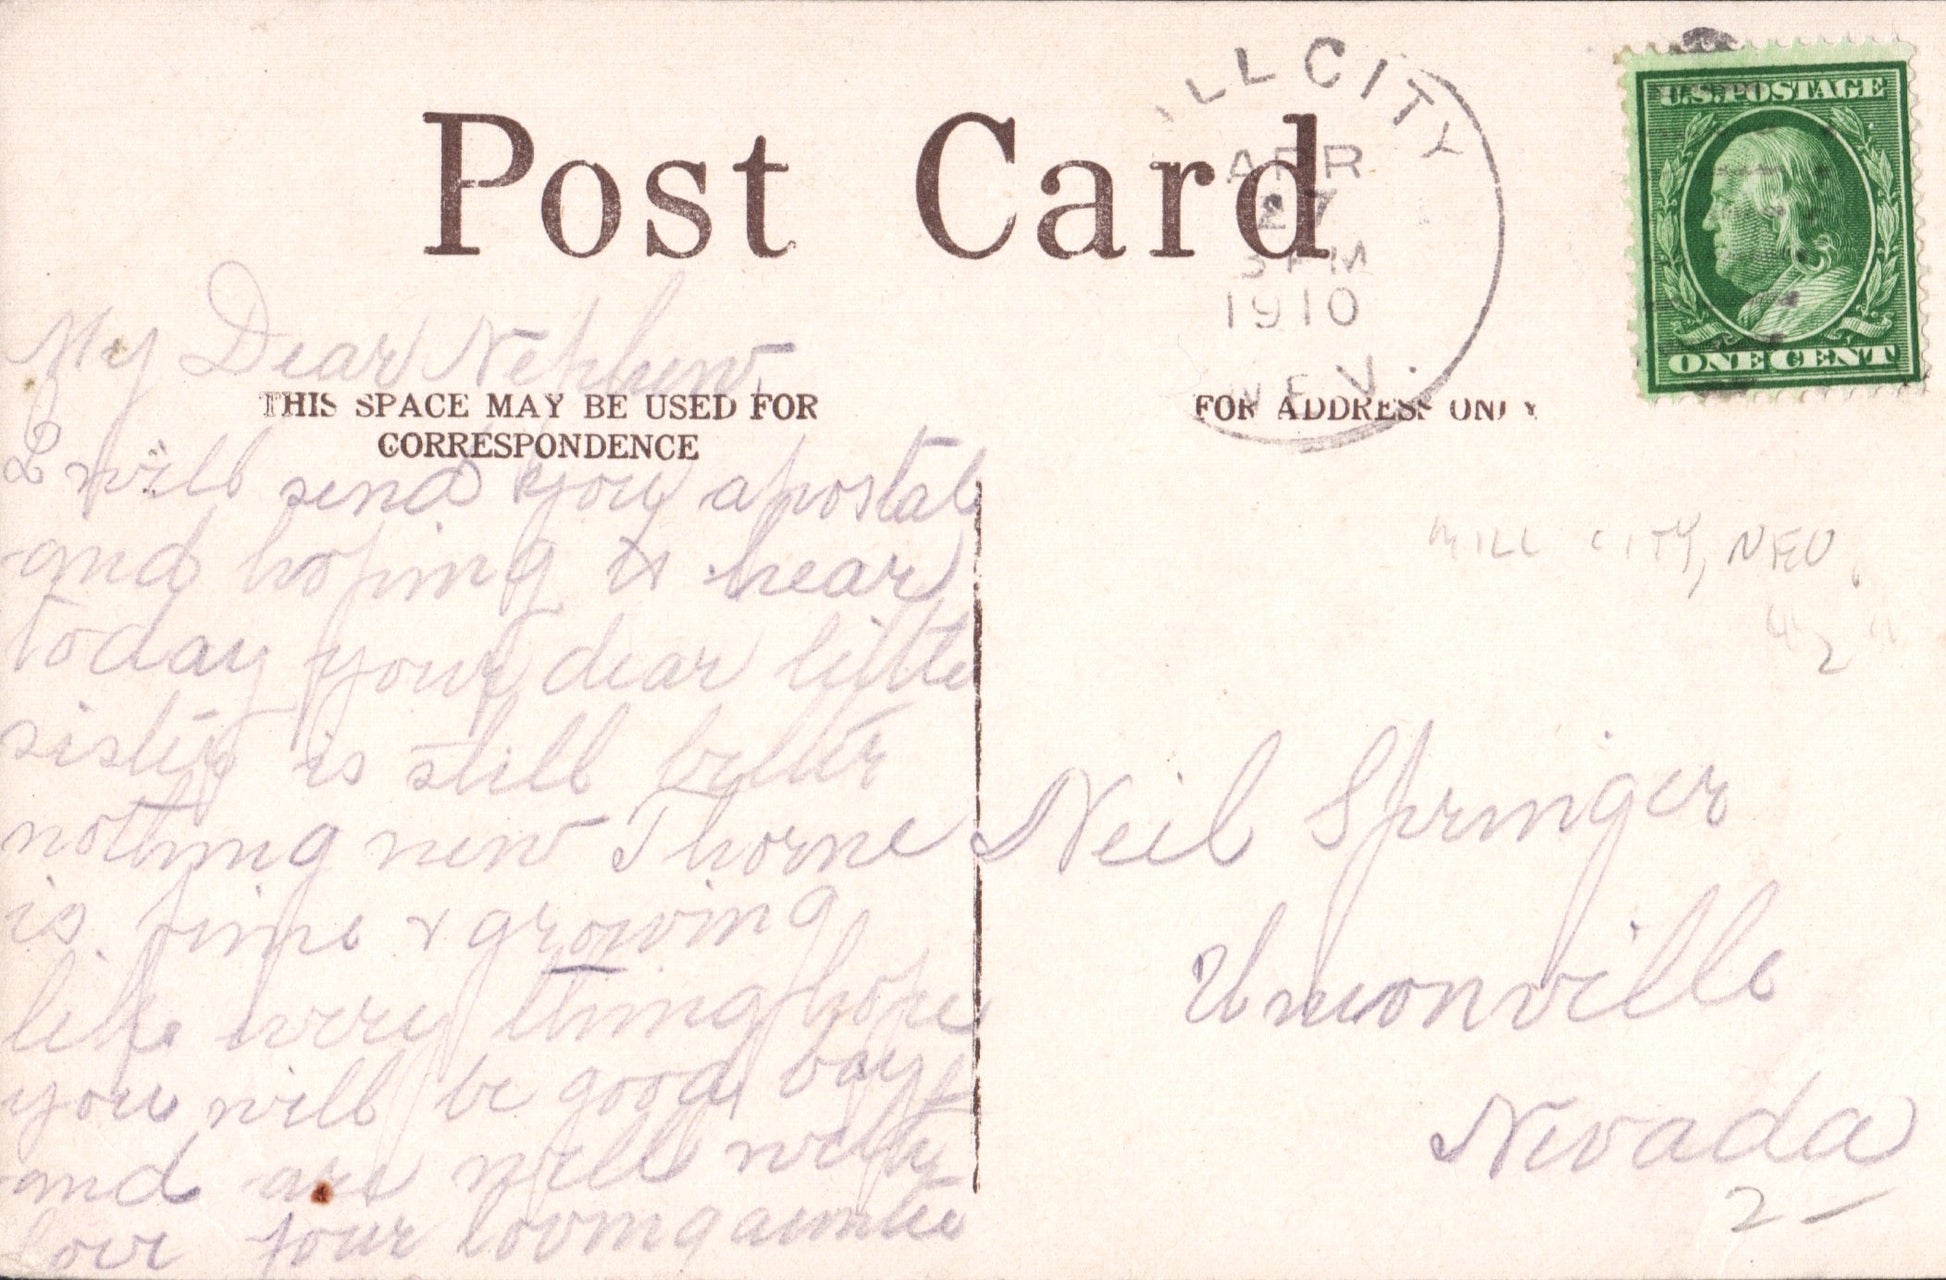 Post Card
ILL CITY
APR
27
3 PM
1910
NEV.
U.S. POSTAGE
ONE CENT
THIS SPACE MAY BE USED FOR
CORRESPONDENCE
FOR ADDRESS ONLY
My Dear Nephew
I will send you a postal
and hoping to hear
today your dear little
sister is still better
nothing new Thorne
is fine & growing
like every thing hope
you will be good boy
and are well with
love your loving auntie
MILL CITY, NEV.
2
Neil Springer
Unionville
Nevada
2 —